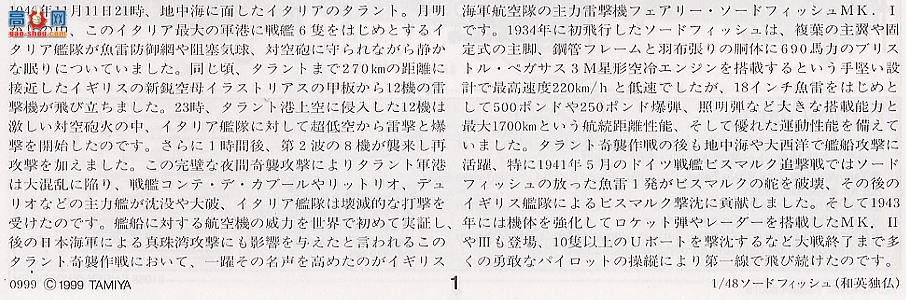 1940年11月11日21時、地中海に面したイタリアのタラント。月明
、このイタリア最大の軍港に戦艦6隻をはじめとするイ
タリア艦隊が魚雷防御網や阻塞気球、対空砲に守られながら静か
な眠りについていました。同じ頃、タラントまで270kmの距離に
接近したイギリスの新鋭空母イラストリアスの甲板から12機の雷
撃機が飛び立ちました。23時、タラント港上空に侵入した12機は
激しい対空砲火の中、イタリア艦隊に対して超低空から雷撃と爆
撃を開始したのです。さらに1時間後、第2波の8機が襲来し再
攻撃を加えました。この完璧な夜間奇襲攻撃によりタラント軍港
は大混乱に陥り、戦艦コンテ・デ・カブールやリットリオ、デュ
リオなどの主力艦が沈没や大破、イタリア艦隊は壊滅的な打撃を
受けたのです。艦船に対する航空機の威力を世界で初めて実証し、
後の日本海軍による真珠湾攻撃にも影響を与えたと言われるこの
タラント奇襲作戦において、一躍その名声を高めたのがイギリス
海軍航空隊の主力雷撃機フェアリー・ソードフィッシュMK.I
です。1934年に初飛行したソードフィッシュは、複葉の主翼や固
定式の主脚、鋼管フレームと羽布張りの胴体に690馬力のブリス
トル・ペガサス3M星形空冷エンジンを搭載するという手堅い設
計で最高速度220km/hと低速でしたが、18インチ魚雷をはじめと
して500ポンドや250ポンド爆弾、照明弾など大きな搭載能力と
最大1700kmという航続距離性能、そして優れた運動性能を備えて
いました。タラント奇襲作戦の後も地中海や大西洋で艦船攻撃に
活躍、特に1941年5月のドイツ戦艦ビスマルク追撃戦ではソード
フィッシュの放った魚雷1発がビスマルクの舵を破壊、その後の
イギリス艦隊によるビスマルク撃沈に貢献しました。そして1943
年には機体を強化してロケット弾やレーダーを搭載したMK.II
やIIIも登場、10隻以上のUボートを撃沈するなど大戦終了まで多
くの勇敢なパイロットの操縦により第一線で飛び続けたのです。
0999 ©1999 TAMIYA
1
1/48ソードフィッシュ(和英独仏)